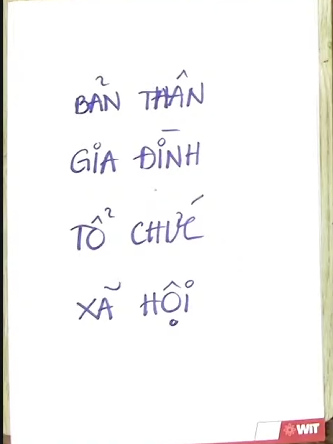 BẢN THÂN
GIA ĐÌNH
TỔ CHỨC
XÃ HỘI
WIT